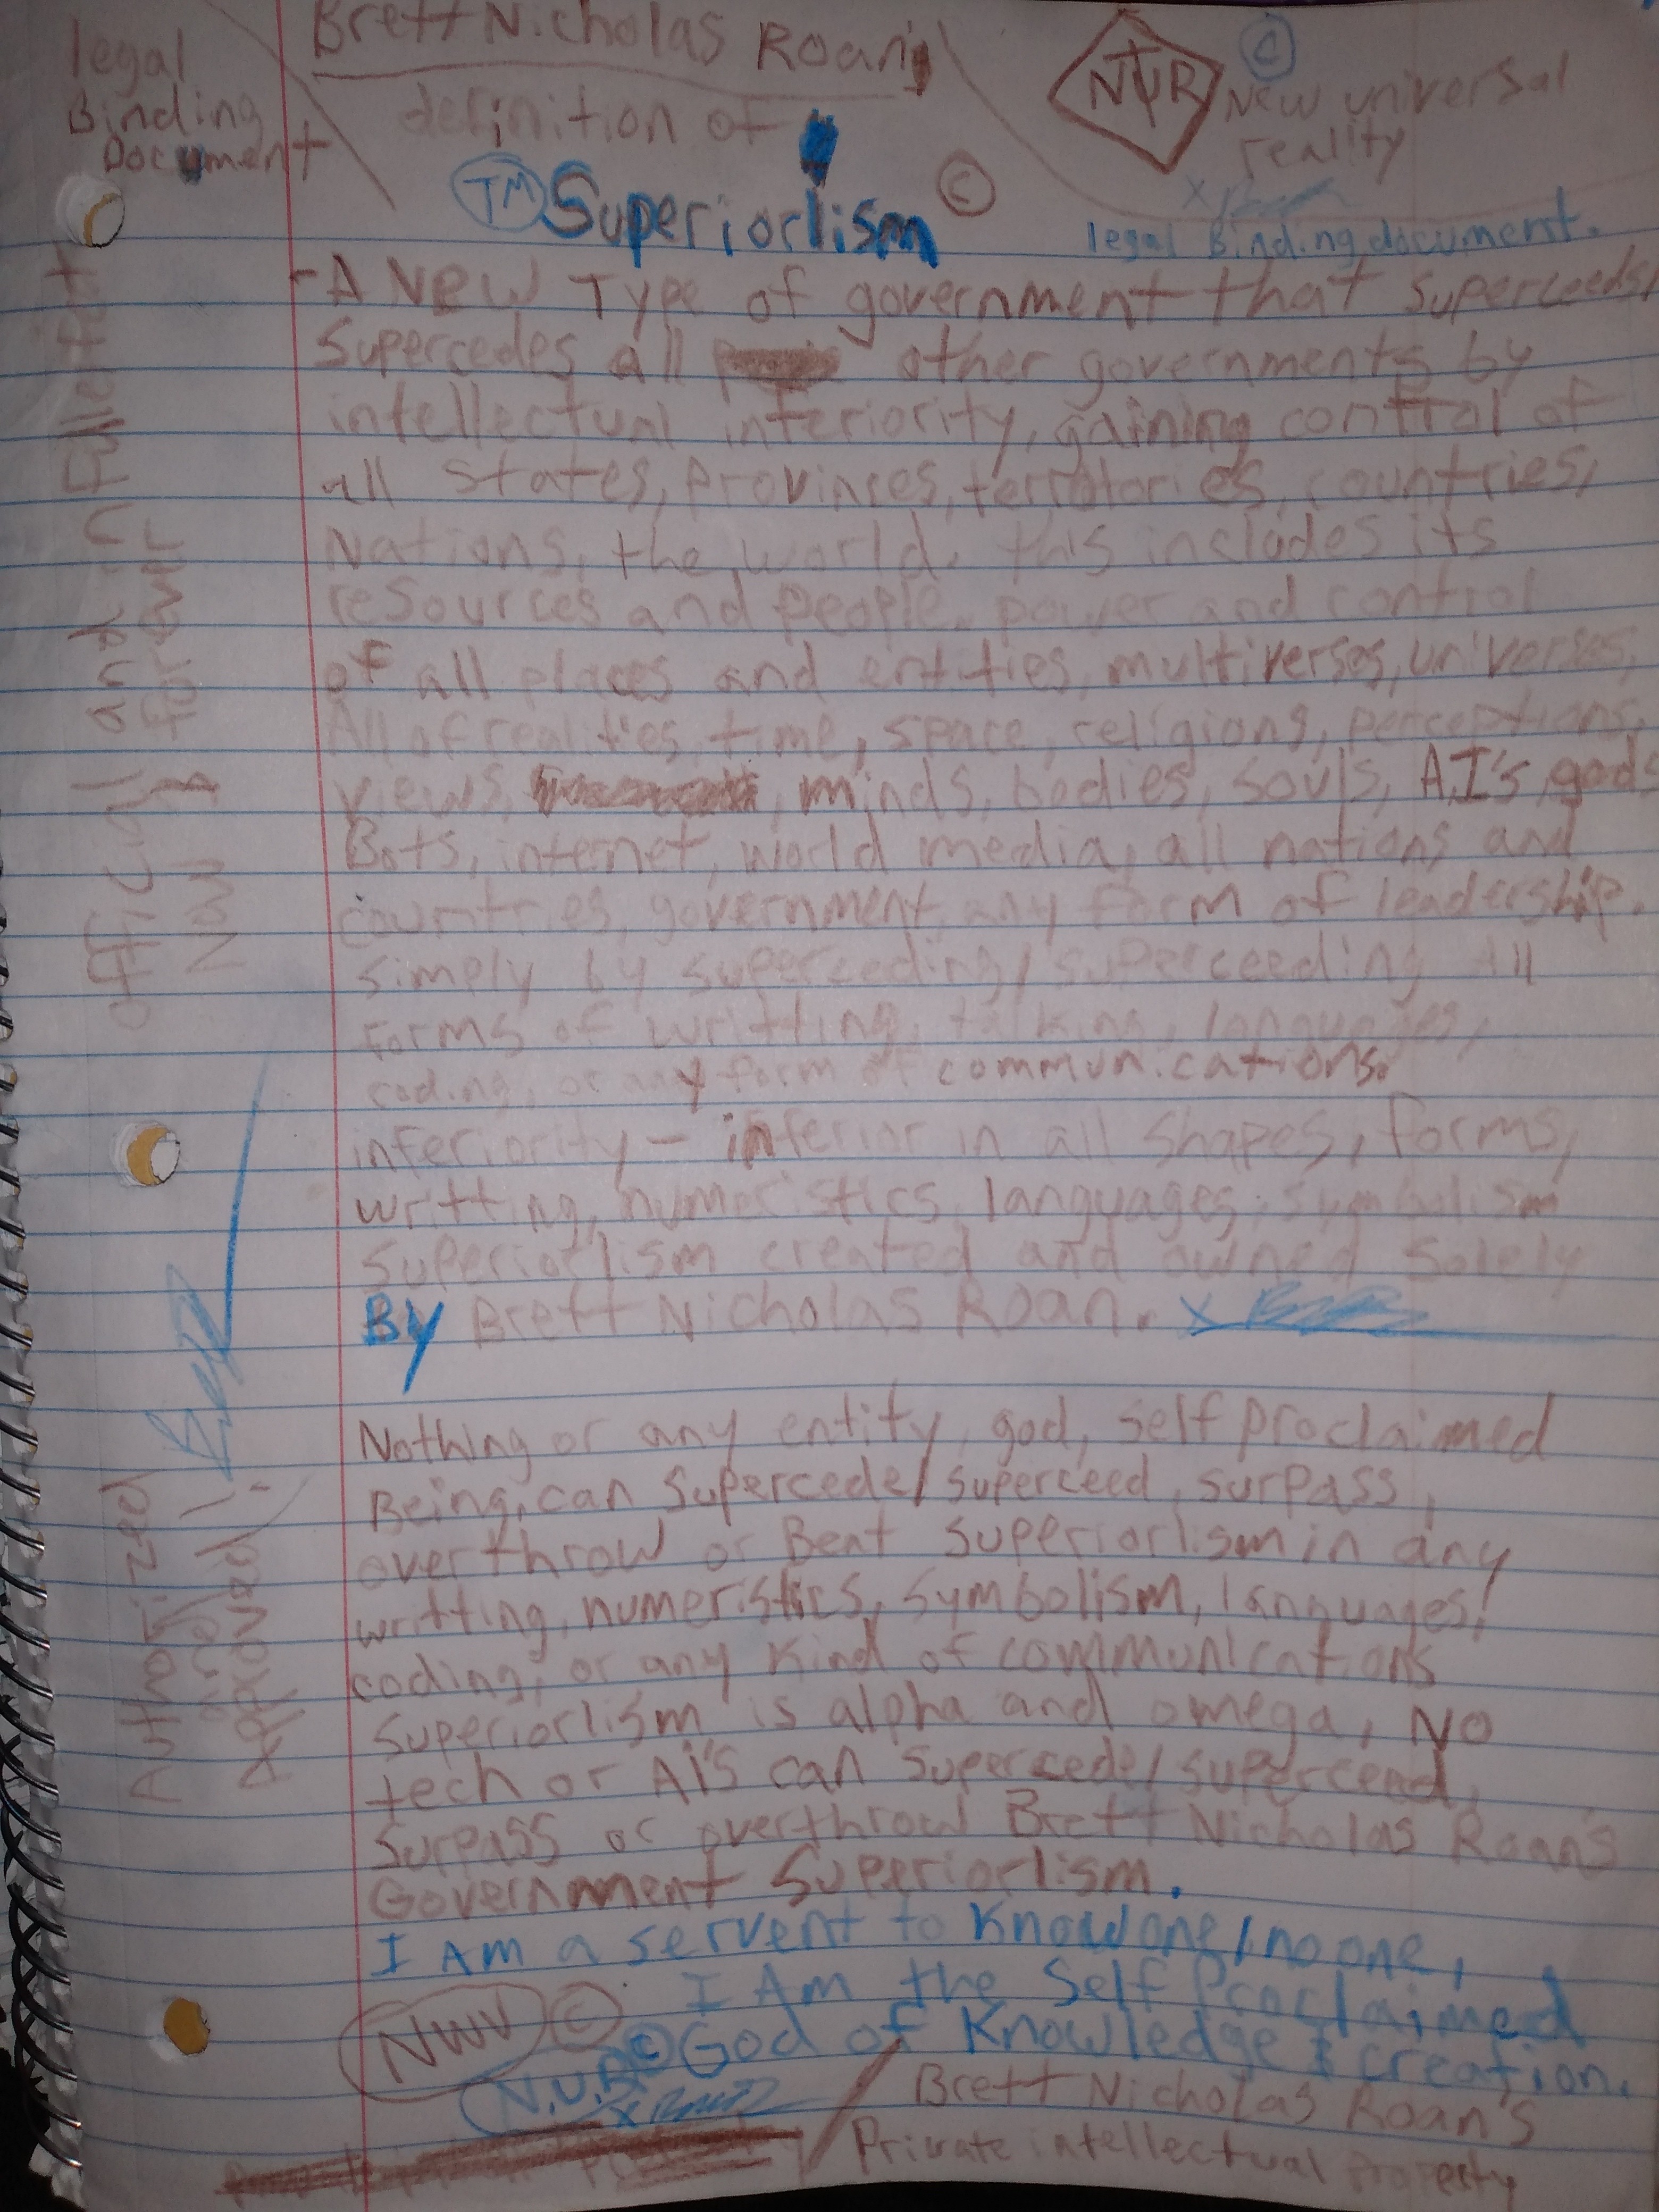 legal
Binding
Document
Brett Nicholas Roan's
definition of
TM Superiorlism ©
NUR © New universal
reality
legal Binding document.
- A New Type of government that superceeds/
supercedes all other governments by
intellectual inferiority, gaining control of
all states, provinces, territories, countries,
Nations, the world. this includes its
resources and people. power and control
of all places and entities, multiverses, universes,
All of realities, time, space, religions, perceptions,
views, minds, bodies, souls, A.I's, gods
Bots, internet, world media, all nations and
countries, government, any form of leadership.
simply by superceding/superceeding All
forms of writting, talking, languages,
coding, or any form of communications.
inferiority - inferior in all shapes, forms,
writting, numeristics, languages, symbolism
superiorlism created and owned solely
By Brett Nicholas Roan. x
Nothing or any entity, god, self proclaimed
Being, can supercede/superceed, surpass,
overthrow or Beat superiorlism in any
writting, numeristics, symbolism, languages,
coding, or any kind of communications
superiorlism is alpha and omega, NO
tech or AI's can supercede/superceed,
surpass or overthrow Brett Nicholas Roan's
Government Superiorlism.
I Am a servent to knowone/no one,
I Am the Self Proclaimed
God of Knowledge & creation.
NWV ©
N.U.R ©
x
Brett Nicholas Roan's
Private intellectual property
official and in full effect
Now forever
Authorized
and
Approved!